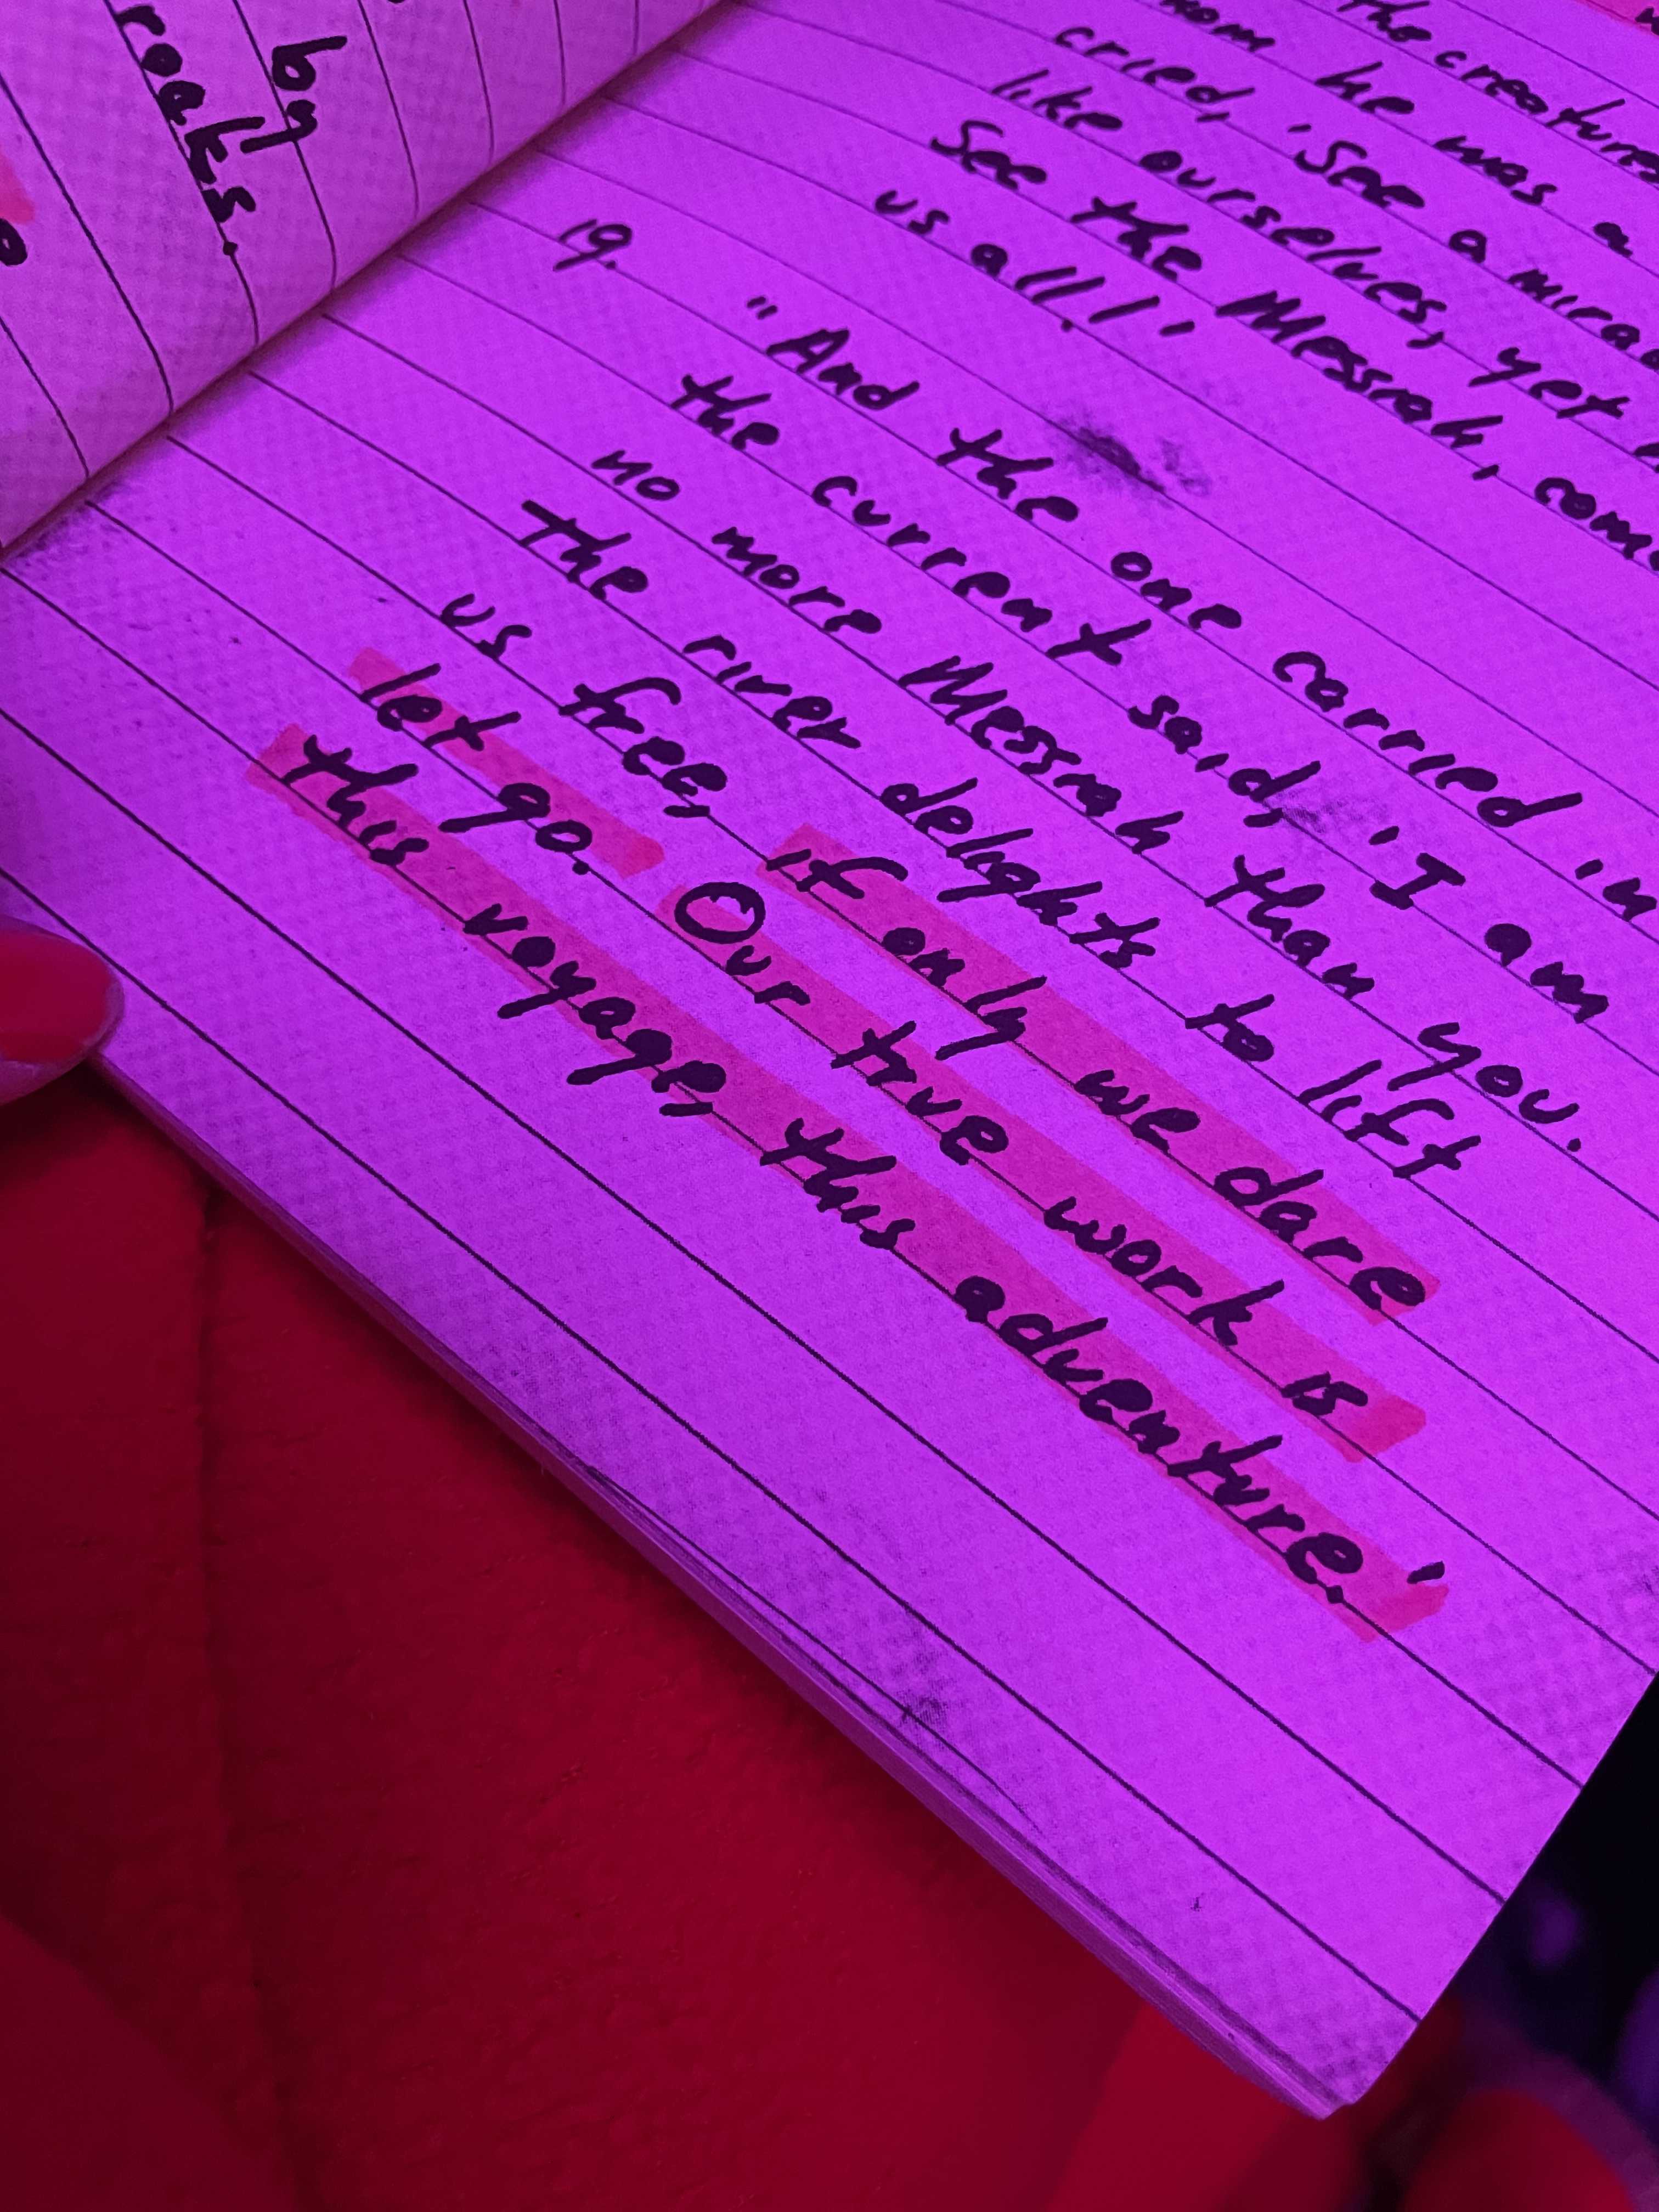 by
the creatures
he was a
cried, 'See a
like ourselves, yet
See the Messiah,
us all!'
19.
"And the one carried in
the current said, 'I am
no more Messiah than you.
The river delights to lift
us free, if only we dare
let go. Our true work is
this voyage, this adventure.'